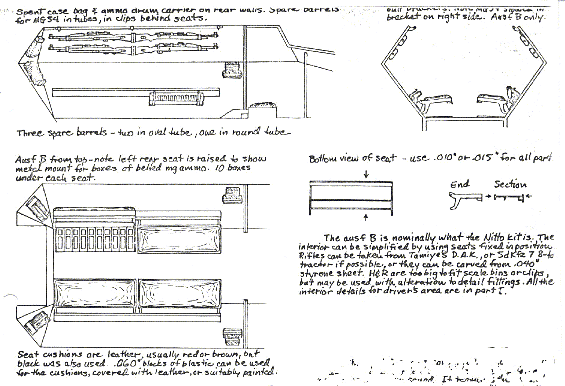 Spent case bag & ammo drum carrier on rear walls. Spare barrels
for MG34 in tubes, in clips behind seats.
bracket on right side. Ausf B only.
Three spare barrels - two in oval tube, one in round tube
Ausf B from top - note left rear seat is raised to show
metal mount for boxes of belted mg ammo. 10 boxes
under each seat.
Bottom view of seat - use .010" or .015" for all part
End Section
The ausf B is nominally what the Nitto kit is. The
interior can be simplified by using seats fixed in position.
Rifles can be taken from Tamiya's D.A.K., or SdKfz 7 8-t
tractor if possible, or they can be carved from .040"
styrene sheet. H&R are too big to fit scale bins or clips,
but may be used, with alteration to detail fittings. All the
interior details for drivers area are in part I.
Seat cushions are leather, usually red or brown, but
black was also used. .060" blocks of plastic can be used
for the cushions, covered with leather, or suitably painted.